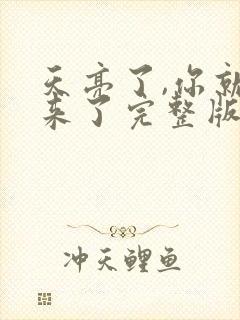 天亮了,你就
来了完整版
冲天鲤鱼